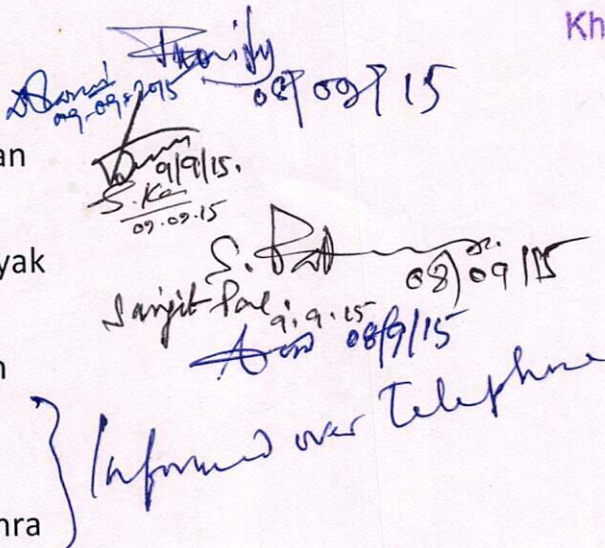 Kh
09-09-2015
08/09/15
an
9/9/15.
S. Ka
09.09.15
yak
S. Pal
08/09/15
Sanjit Pal 9.9.15
08/9/15
n
Informed over Telephone
hra